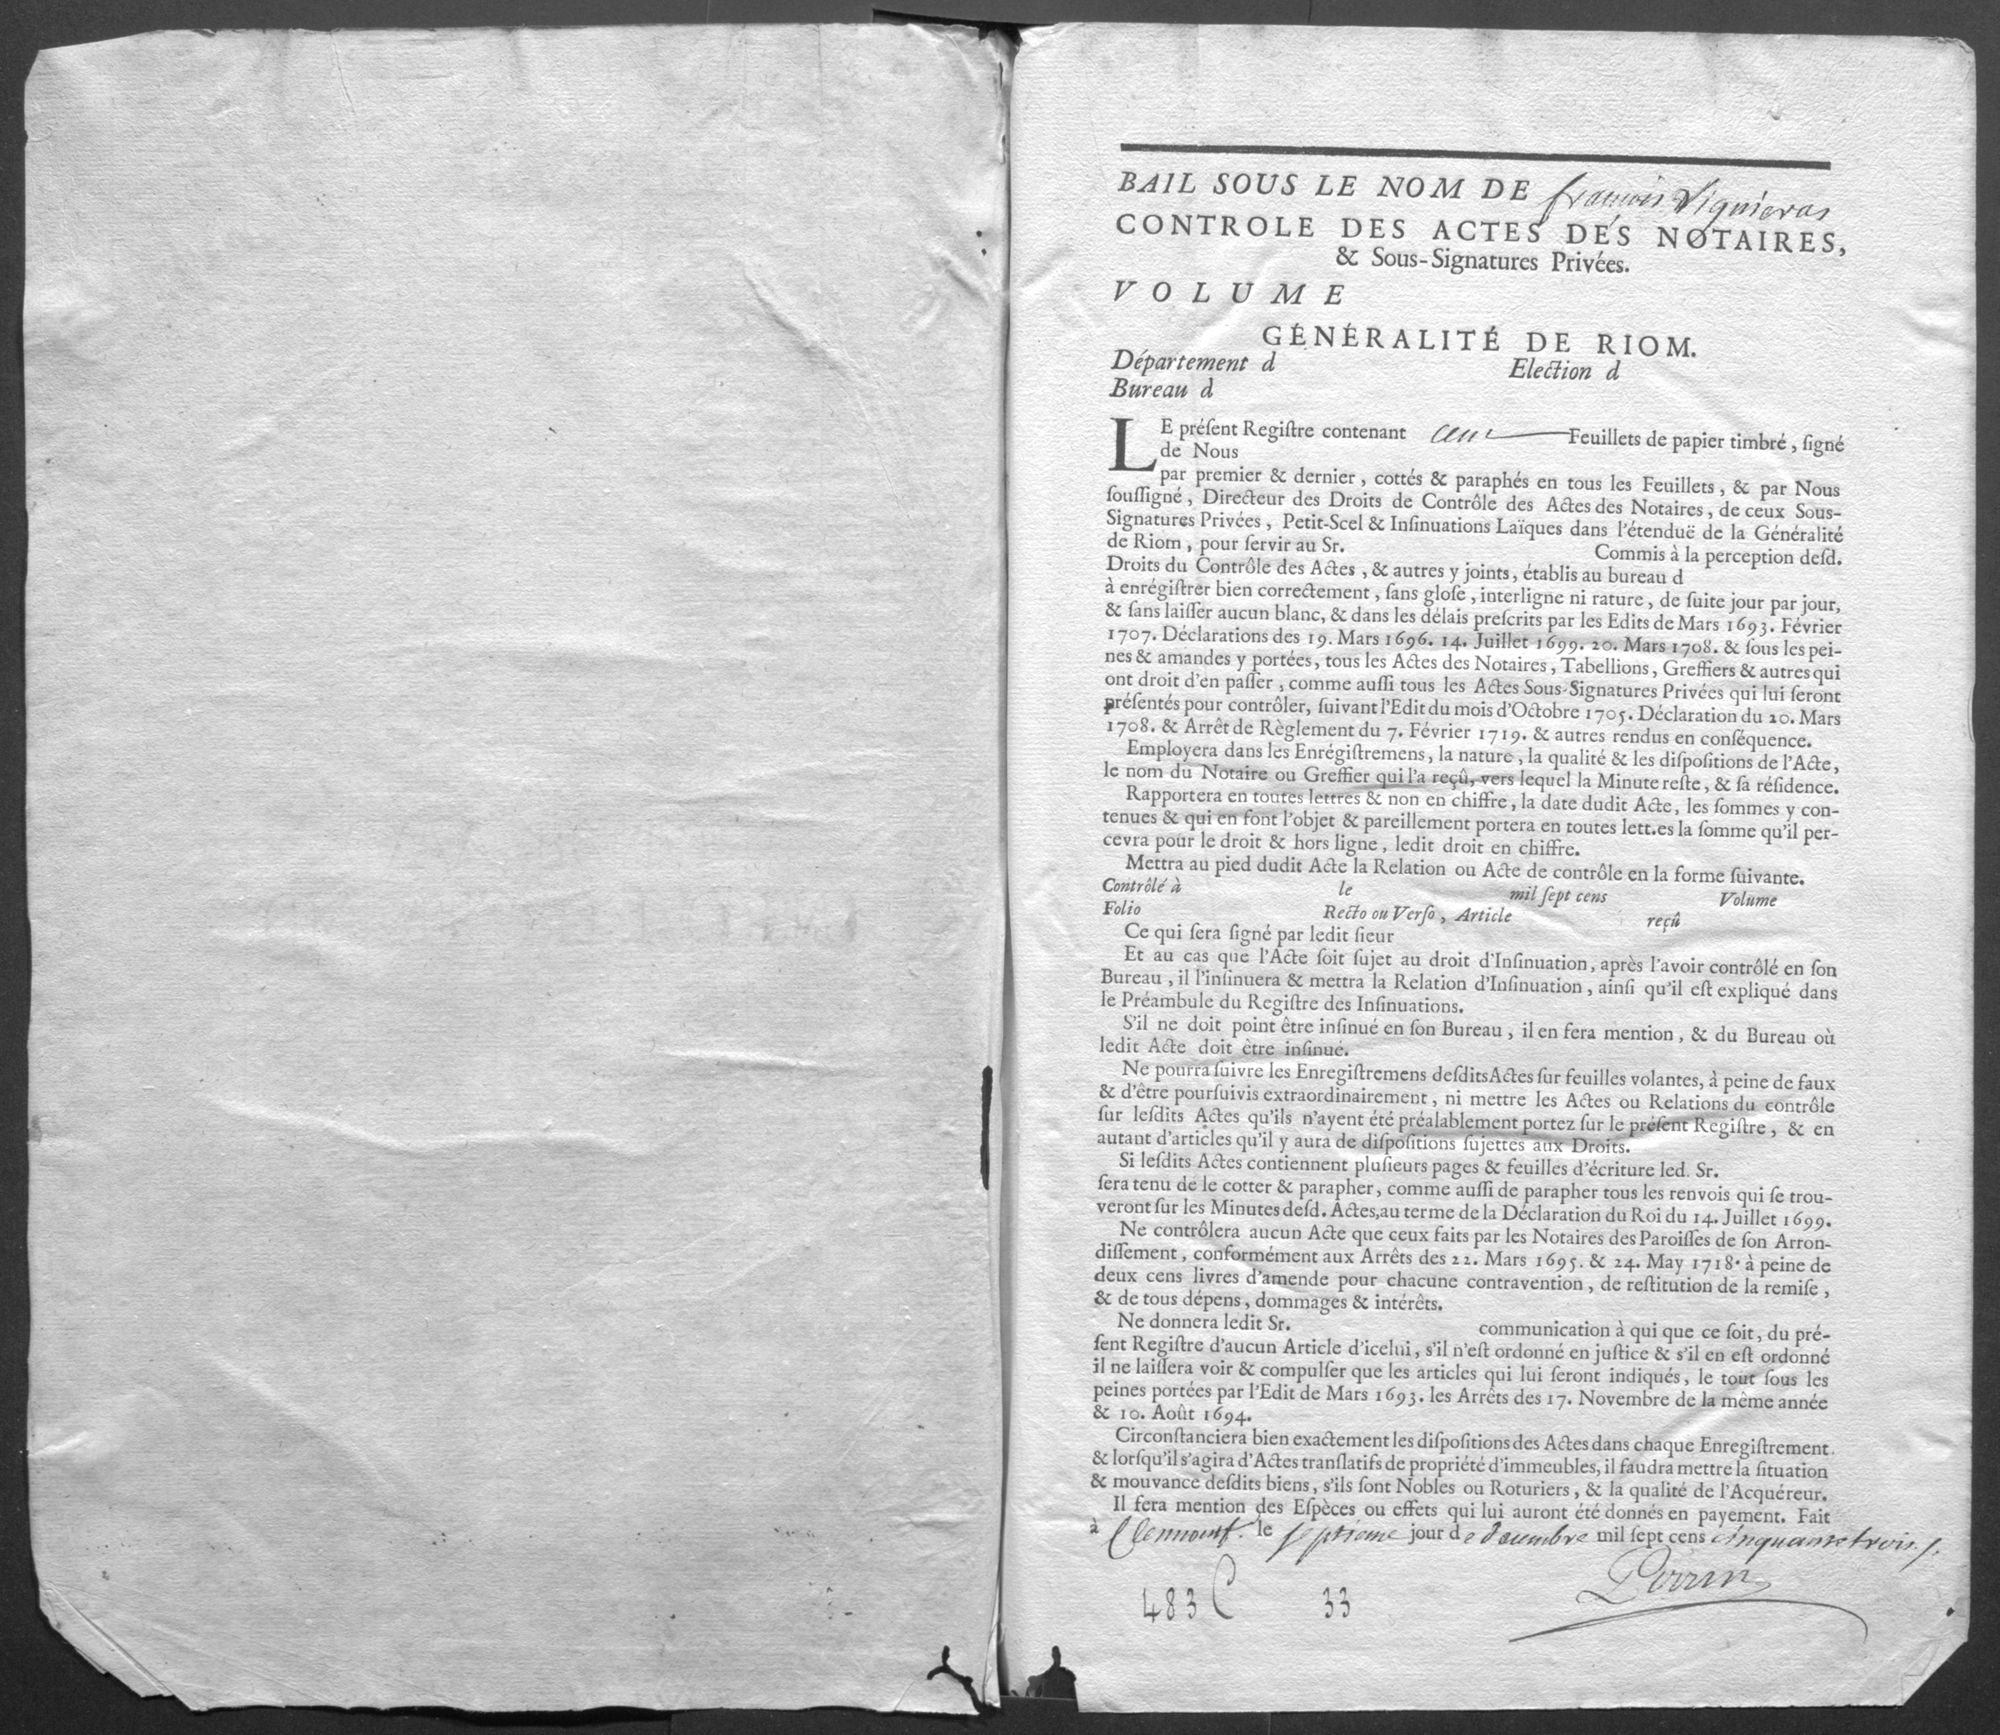 BAIL SOUS LE NOM DE francois Vignieras
CONTROLE DES ACTES DES NOTAIRES,
& Sous-Signatures Privées.
VOLUME
GÉNÉRALITÉ DE RIOM.
Département d Election d
Bureau d
LE préſent Regiſtre contenant cent Feuillets de papier timbré, ſigné
de Nous
par premier & dernier, cottés & paraphés en tous les Feuillets, & par Nous
ſouſſigné, Directeur des Droits de Contrôle des Actes des Notaires, de ceux Sous-
Signatures Privées, Petit-Scel & Inſinuations Laïques dans l'étenduë de la Généralité
de Riom, pour ſervir au Sr. Commis à la perception deſd.
Droits du Contrôle des Actes, & autres y joints, établis au bureau d
à enrégiſtrer bien correctement, ſans gloſe, interligne ni rature, de ſuite jour par jour,
& ſans laiſſer aucun blanc, & dans les délais preſcrits par les Edits de Mars 1693. Février
1707. Déclarations des 19. Mars 1696. 14. Juillet 1699. 20. Mars 1708. & ſous les pei-
nes & amandes y portées, tous les Actes des Notaires, Tabellions, Greffiers & autres qui
ont droit d'en paſſer, comme auſſi tous les Actes Sous-Signatures Privées qui lui ſeront
préſentés pour contrôler, ſuivant l'Edit du mois d'Octobre 1705. Déclaration du 20. Mars
1708. & Arrêt de Règlement du 7. Février 1719. & autres rendus en conſéquence.
Employera dans les Enrégiſtremens, la nature, la qualité & les diſpoſitions de l'Acte,
le nom du Notaire ou Greffier qui l'a reçû, vers lequel la Minute reſte, & ſa réſidence.
Rapportera en toutes lettres & non en chiffre, la date dudit Acte, les ſommes y con-
tenues & qui en font l'objet & pareillement portera en toutes lett.es la ſomme qu'il per-
cevra pour le droit & hors ligne, ledit droit en chiffre.
Mettra au pied dudit Acte la Relation ou Acte de contrôle en la forme ſuivante.
Contrôlé à le mil ſept cens Volume
Folio Recto ou Verſo, Article reçû
Ce qui ſera ſigné par ledit ſieur
Et au cas que l'Acte ſoit ſujet au droit d'Inſinuation, après l'avoir contrôlé en ſon
Bureau, il l'inſinuera & mettra la Relation d'Inſinuation, ainſi qu'il eſt expliqué dans
le Préambule du Regiſtre des Inſinuations.
S'il ne doit point être inſinué en ſon Bureau, il en fera mention, & du Bureau où
ledit Acte doit être inſinué.
Ne pourra ſuivre les Enregiſtremens deſdits Actes ſur feuilles volantes, à peine de faux
& d'être pourſuivis extraordinairement, ni mettre les Actes ou Relations du contrôle
ſur leſdits Actes qu'ils n'ayent été préalablement portez ſur le préſent Regiſtre, & en
autant d'articles qu'il y aura de diſpoſitions ſujettes aux Droits.
Si leſdits Actes contiennent pluſieurs pages & feuilles d'écriture led. Sr.
ſera tenu de le cotter & parapher, comme auſſi de parapher tous les renvois qui ſe trou-
veront ſur les Minutes deſd. Actes, au terme de la Déclaration du Roi du 14. Juillet 1699.
Ne contrôlera aucun Acte que ceux faits par les Notaires des Paroiſſes de ſon Arron-
diſſement, conformément aux Arrêts des 22. Mars 1695. & 24. May 1718. à peine de
deux cens livres d'amende pour chacune contravention, de reſtitution de la remiſe,
& de tous dépens, dommages & intérêts.
Ne donnera ledit Sr. communication à qui que ce ſoit, du pré-
ſent Regiſtre d'aucun Article d'icelui, s'il n'eſt ordonné en juſtice & s'il en eſt ordonné
il ne laiſſera voir & compulſer que les articles qui lui ſeront indiqués, le tout ſous les
peines portées par l'Edit de Mars 1693. les Arrêts des 17. Novembre de la même année
& 10. Août 1694.
Circonſtanciera bien exactement les diſpoſitions des Actes dans chaque Enregiſtrement.
& lorſqu'il s'agira d'Actes tranſlatifs de propriété d'immeubles, il faudra mettre la ſituation
& mouvance deſdits biens, s'ils ſont Nobles ou Roturiers, & la qualité de l'Acquéreur.
Il fera mention des Eſpèces ou effets qui lui auront été donnés en payement. Fait
à Clermont le ſeptieme jour de decembre mil ſept cens cinquante trois
Perrin
483 C 33